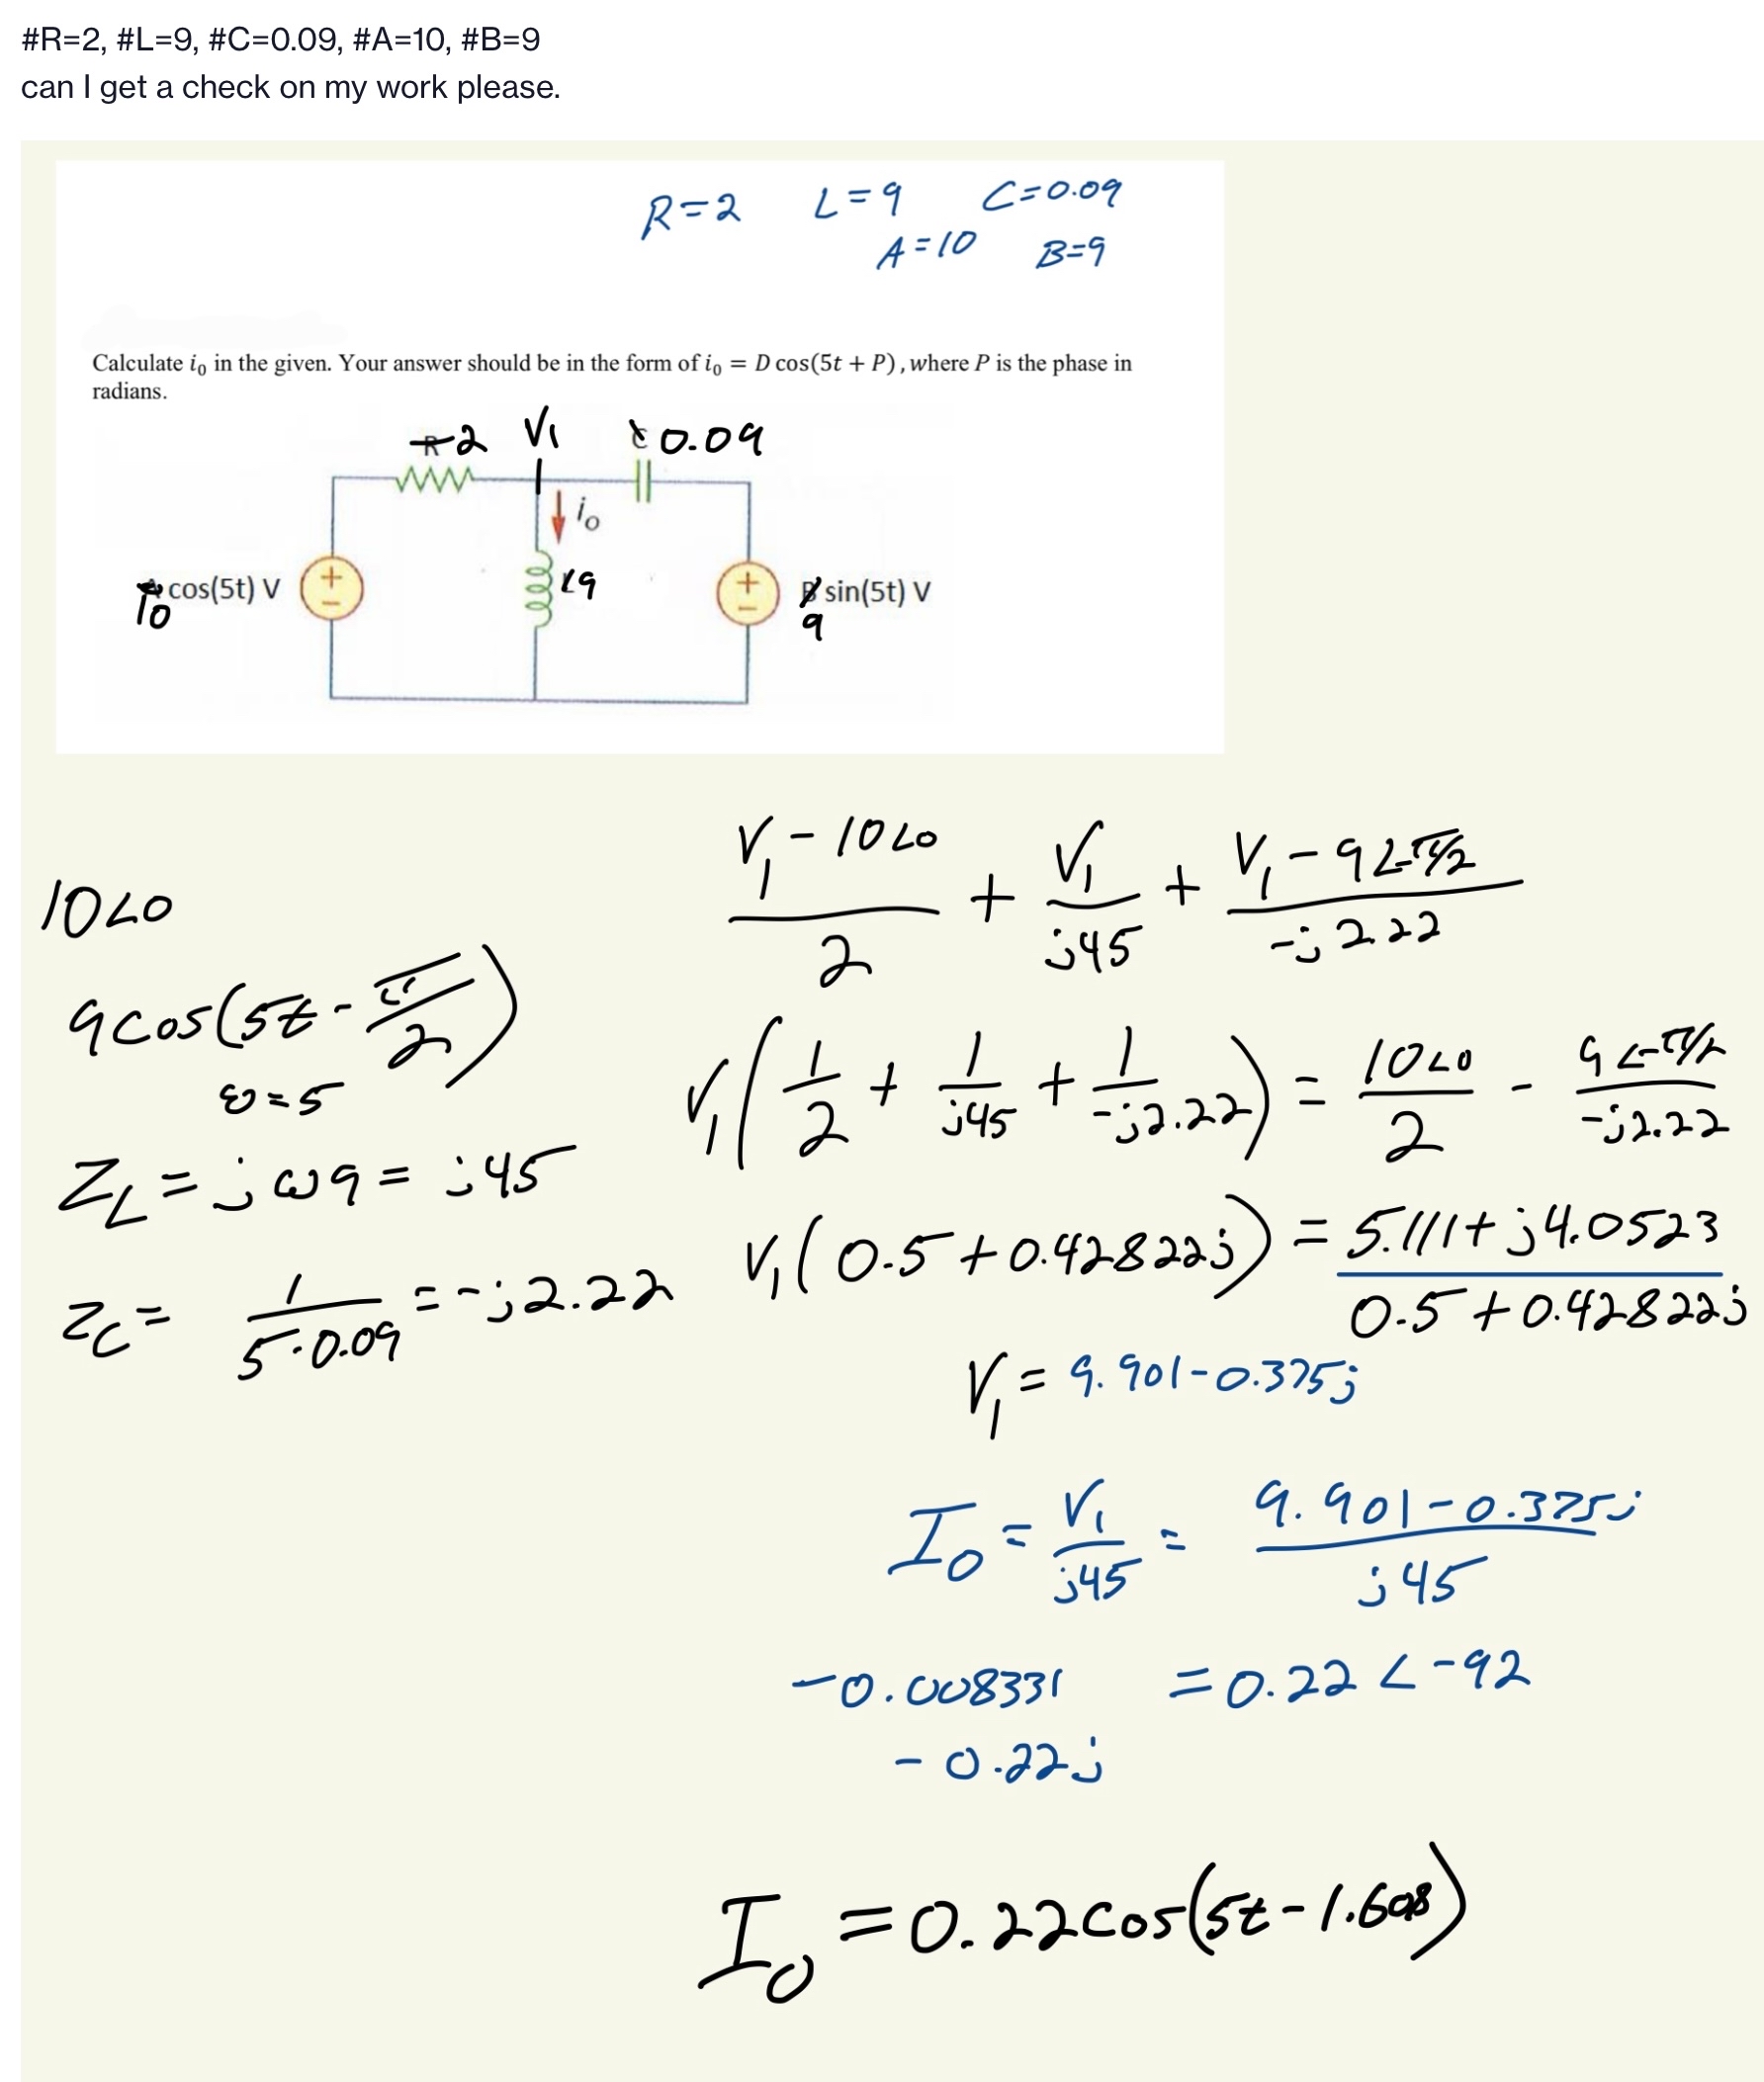 #R=2, #L=9, #C=0.09, #A=10, #B=9
can I get a check on my work please.
R=2 L=9 C=0.09
A=10 B=9
Calculate i₀ in the given. Your answer should be in the form of i₀ = D cos(5t + P), where P is the phase in
radians.
R 2 V₁ C 0.09
i₀
10 cos(5t) V
L9
B sin(5t) V
9
10∠0
9cos(5t - π/2)
ω=5
Z_L = jω9 = j45
Z_C = 1/(5·0.09) = -j2.22
(V₁ - 10∠0)/2 + V₁/j45 + (V₁ - 9∠-π/2)/(-j2.22)
V₁(1/2 + 1/j45 + 1/(-j2.22)) = 10∠0/2 - 9∠-π/2/(-j2.22)
V₁(0.5+0.42822j) = (5.111+j4.0523)/(0.5+0.42822j)
V₁ = 9.901-0.375j
I₀ = V₁/j45 = (9.901-0.375j)/j45
-0.008331 = 0.22∠-92
-0.22j
I₀ = 0.22cos(5t-1.608)